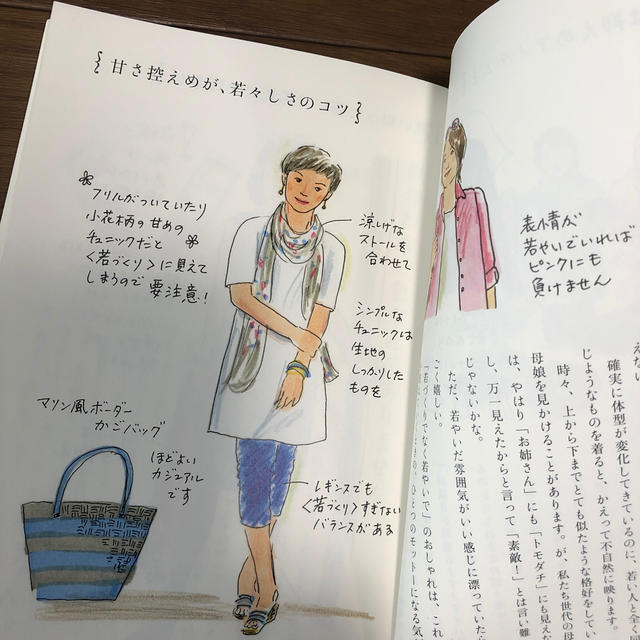 甘さ控えめが、若々しさのコツ
フリルがついていたり
小花柄の甘めの
チュニックだと
〈若づくり〉に見えて
しまうので要注意!
涼しげな
ストールを
合わせて
シンプルな
チュニックは
生地の
しっかりした
ものを
マリン風ボーダー
かごバッグ
ほどよい
カジュアル
です
レギンスでも
〈若づくり〉すぎない
バランスがある
表情が
若やいでいれば
ピンクにも
負けません
えない
確実に体型が変化してきているのに、若い人と全く同
じようなものを着ると、かえって不自然に映ります。
時々、上から下までとても似たような格好をしてい
母娘を見かけることがあります。が、私たち世代の母
は、やはり「お姉さん」にも「トモダチ」にも見え
し、万一見えたからと言って「素敵!」とは言い難
じゃないかな。
ただ、若やいだ雰囲気がいい感じに漂っていた
ごく嬉しい。
「若づくりでなく若やいで」のおしゃれは、これ
ひとつのモットーになる気が